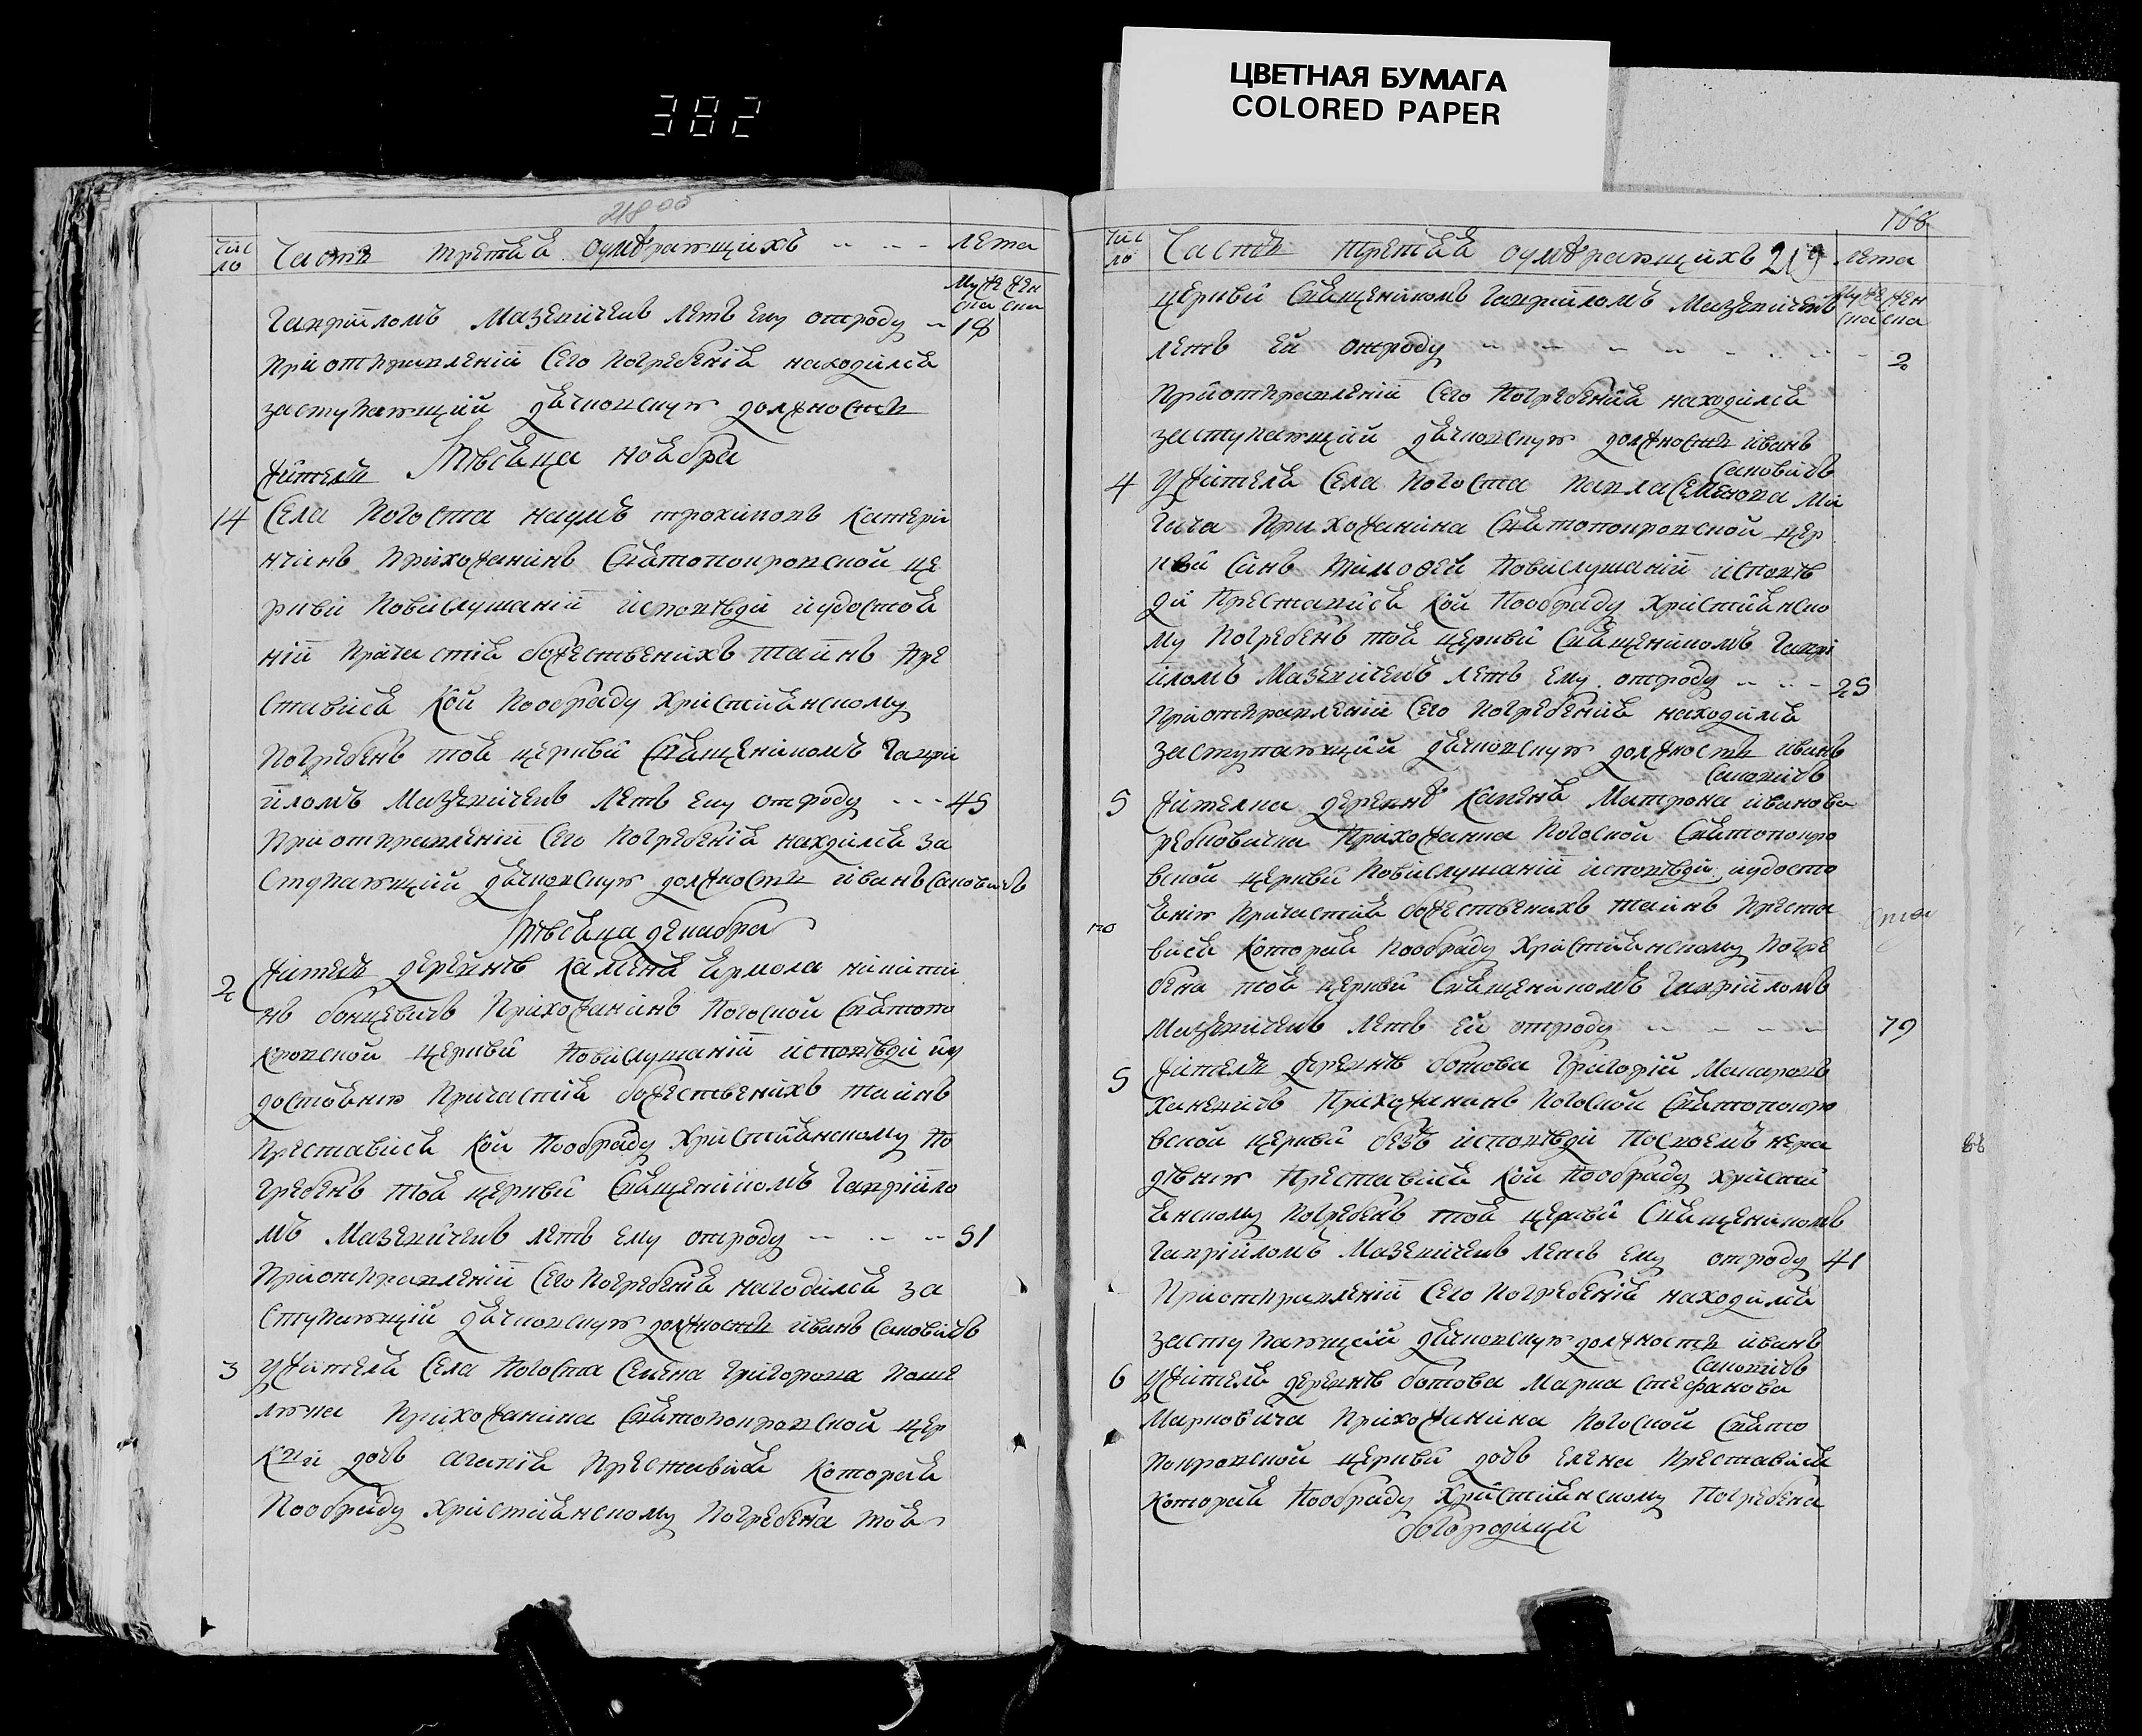 382
ЦВЕТНАЯ БУМАГА
COLORED PAPER
218 об
Чис
ло
Часть третья оумѣрающихъ
лета
Муже
ска
жен
ска
Гавріиломъ Мазевичемъ летъ ему отроду 18
При отправленіи сего погребенія находился
заступающій дячковскую должность
Мѣсяца ноября
житель
14 Села Погоста наумъ трохимовъ Катери
нчинъ прихожанинъ Святопокровской це
ркви повислушаніи исповѣди иудостоя
ніи причастія божественихъ таинъ пре
ставися кой пообряду христіянскому
погребенъ тоя церкви священикомъ Гаври
иломъ Мазевичемъ летъ ему отроду 45
При отправленіи сего погребенія нахдился за
ступающій дячковскую должность иванъ Сановичъ
Мѣсяца декабра
2 житель деревнѣ Каменя ярмола никити
нъ бонцевичъ прихожанинъ погоской святопо
кровской церкви повислушаніи исповѣди иу
достоянію причастія божественихъ таинъ
преставися кой пообряду христіянскому по
гребенъ тоя церкви священикомъ Гавріило
мъ Мазевичемъ летъ ему отроду 51
При отправленіи сего погребенія находился за
ступающій дячковскую должность иванъ Сановичъ
3 Ужителя села погоста Семена Григорова
прихожанина святопокровской цер
кви дочъ агапія преставися которая
пообряду христіянскому погребена тоя
168
Чис
ло
Часть третья оумѣрающихъ 219
лета
Муже
ска
жен
ска
церкви священикомъ Гавріиломъ Мазевичемъ
летъ ей отроду 2
При отправленіи сего погребенія находился
заступающій дячковскую должность иванъ
Сановичъ
4 Ужителя села погоста павла Семенова
прихожанина святопокровской цер
кви синъ тимофей повислушаніи исповѣ
ди преставися кой пообряду христіянско
му погребенъ тоя церкви священикомъ Гаврі
иломъ Мазевичемъ летъ ему отроду 25
При отправленіи сего погребенія находился
заступающій дячковскую должность иванъ
Сановичъ
5 Жителка деревнѣ Каменя Матрона иванова
Ребковичка прихожанка погоской святопокро
вской церкви повислушаніи исповѣди иудосто
янію причастія божественихъ таинъ преста
вися которая пообряду христіянскому погре
бена тоя церкви священикомъ Гавріиломъ
Мазевичемъ летъ ей отроду 79
5 житель деревнѣ ботова Григорій Макаровъ
Ханевичъ прихожанинъ погоской святопокро
вской церкви безъ исповѣди посвоемъ нера
дѣнію преставися кой пообряду христі
янскому погребенъ тоя церкви священикомъ
Гавріиломъ Мазевичемъ летъ ему отроду 41
При отправленіи сего погребенія находился
заступающій дячковскую должность иванъ
Сановичъ
6 Ужителя деревнѣ ботова Марка Стефанова
Марковича прихожанина погоской свято
покровской церкви дочъ елена преставися
которая пообряду христіянскому погребена
богородици